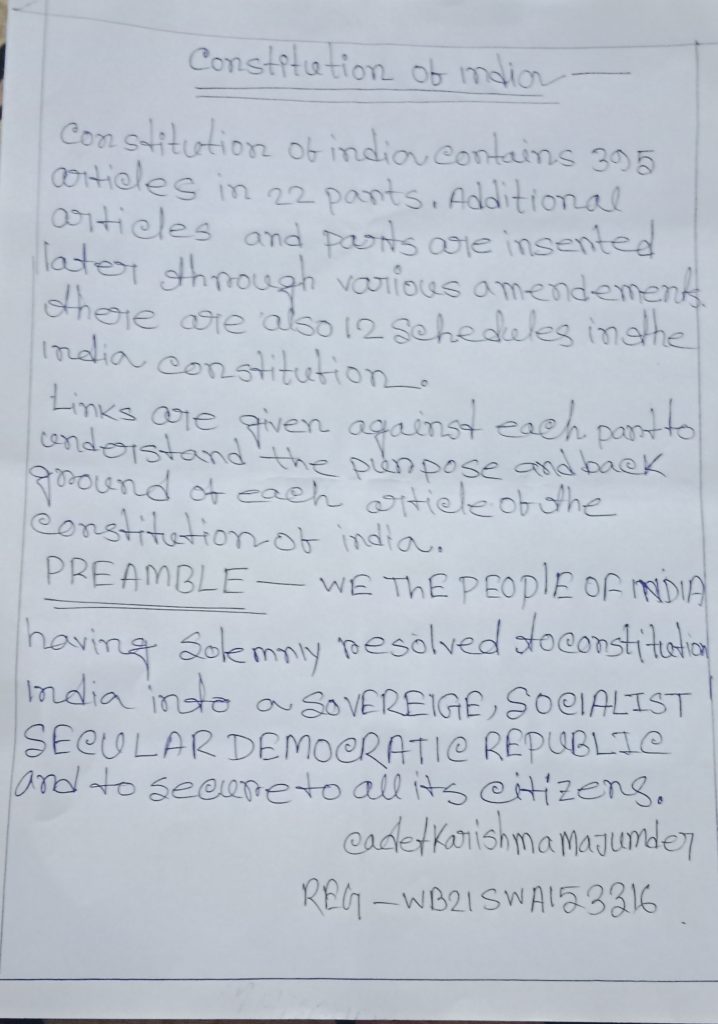 Constitution of india —
Constitution of india contains 395
articles in 22 parts. Additional
articles and parts are insented
later through various amendements.
there are also 12 schedules in the
india constitution.
Links are given against each part to
understand the purpose and back
ground of each article of the
Constitution of india.
PREAMBLE — WE ThE PEOPlE OF INDIA
having Solemnly resolved to constitution
india into a SOVEREIGE, SOCIALIST
SECULAR DEMOCRATIC REPUBLIC
and to secure to all its citizens.
cadet Karishma Majumder
REG – WB21SWA153316